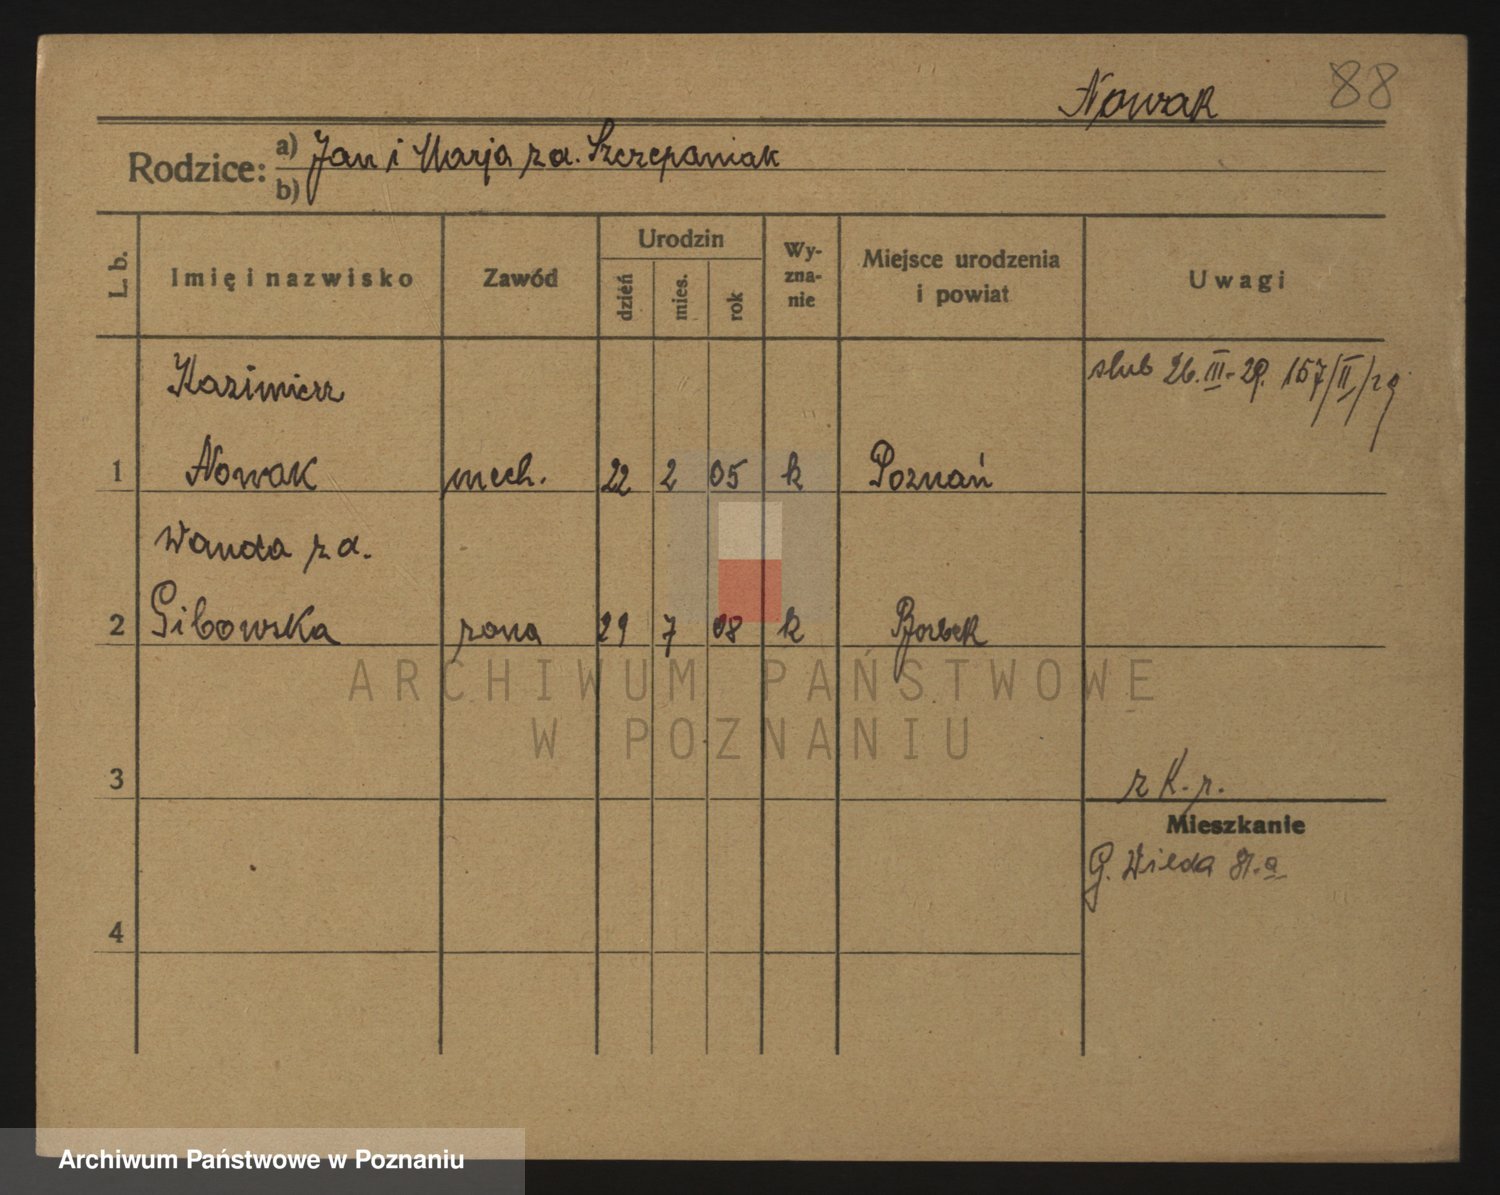 Nowak 88
Rodzice: a) Jan i Marja z d. Szczepaniak
b)
L. b. Imię i nazwisko Zawód Urodzin dzień mies. rok Wy-zna-nie Miejsce urodzenia i powiat Uwagi
Kazimierz
ślub 26.III-29. 157/II/29
1 Nowak mech. 22 2 05 k Poznań
Wanda z d.
2 Gibowska żona 29 7 08 k Borbek
ARCHIWUM PAŃSTWOWE
W POZNANIU
3 z K. r.
Mieszkanie
G. Wilda 81.a
4
Archiwum Państwowe w Poznaniu